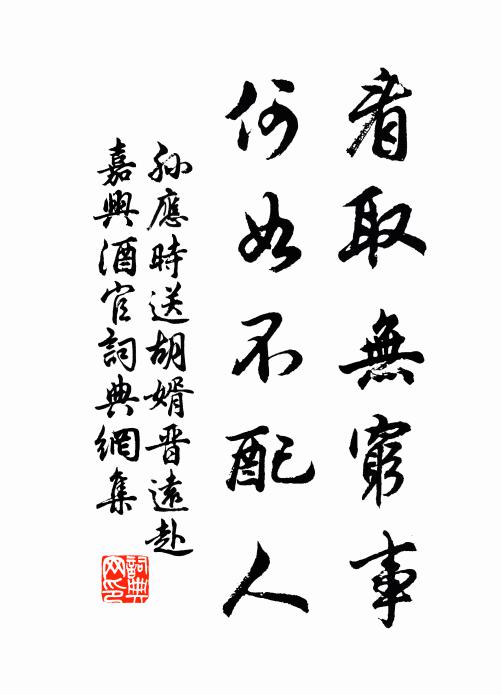 看取無窮事
何如不配人
孫應時送胡婿晋遠赴
嘉興酒官詞典網集
詞典
网印